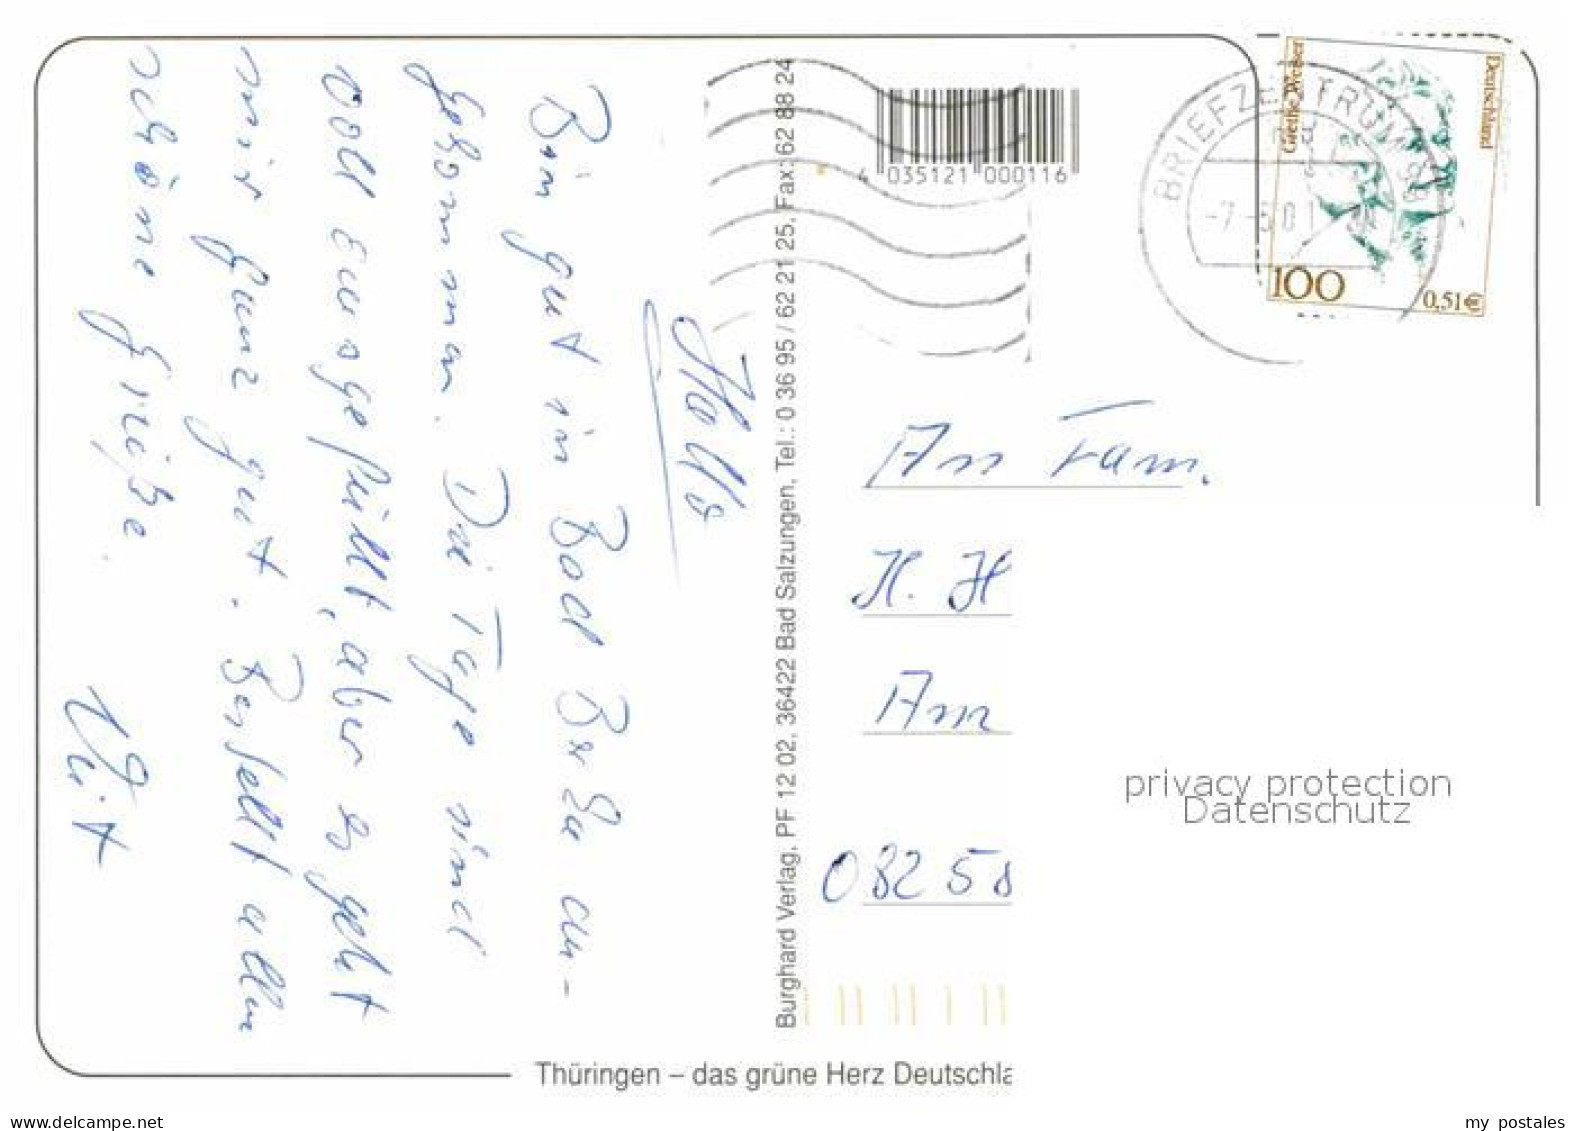 Hallo
Bin gut in Bad Berka an-
gekommen. Die Tage sind
voll ausgefüllt, aber es geht
mir ganz gut. Bestellt allen
schöne Grüße.
Burghard Verlag, PF 12 02, 36422 Bad Salzungen, Tel.: 0 36 95 / 62 21 25, Fax: 62 88 24
4 035121 000116
BRIEFZENTRUM 98
-7.-5.01
Grethe Weiser
Deutschland
100
0,51 €
An Fam.
H. H
Am
0825
privacy protection
Datenschutz
Thüringen – das grüne Herz Deutschla
www.delcampe.net
my_postales